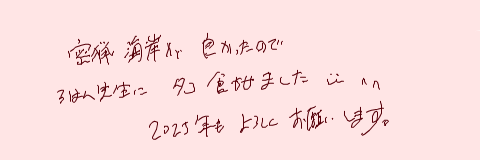 密猟海岸が 良かったので
ろはん先生に タコ 食わせました ¨̮ ^^
2025年も よろしく お願いします。